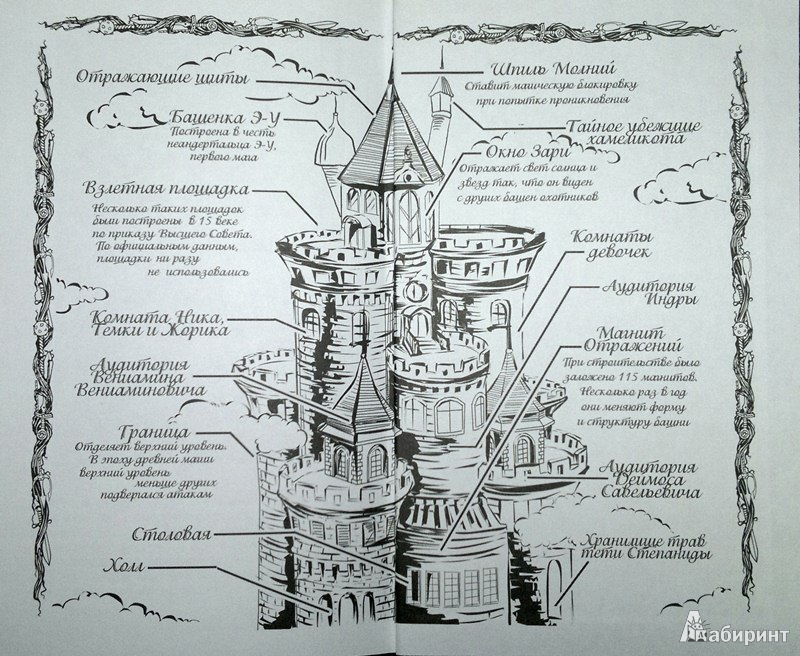 Отражающие щиты
Башенка Э-У
Построена в честь
неандертальца Э-У,
первого мага
Взлетная площадка
Несколько таких площадок
были построены в 15 веке
по приказу Высшего Совета.
По официальным данным,
площадки ни разу
не использовались
Комната Ника,
Темки и Жорика
Аудитория
Вениамина
Вениаминовича
Граница
Отделяет верхний уровень.
В эпоху древней магии
верхний уровень
меньше других
подвергался атакам
Столовая
Холл
Шпиль Молний
Ставит магическую блокировку
при попытке проникновения
Тайное убежище
хамеликота
Окно Зари
Отражает свет солнца и
звезд так, что он виден
с других башен охотников
Комнаты
девочек
Аудитория
Индры
Магнит
Отражений
При строительстве было
заложено 115 магнитов.
Несколько раз в год
они меняют форму
и структуру башни
Аудитория
Деймоса
Савельевича
Хранилище трав
тети Степаниды
Лабиринт